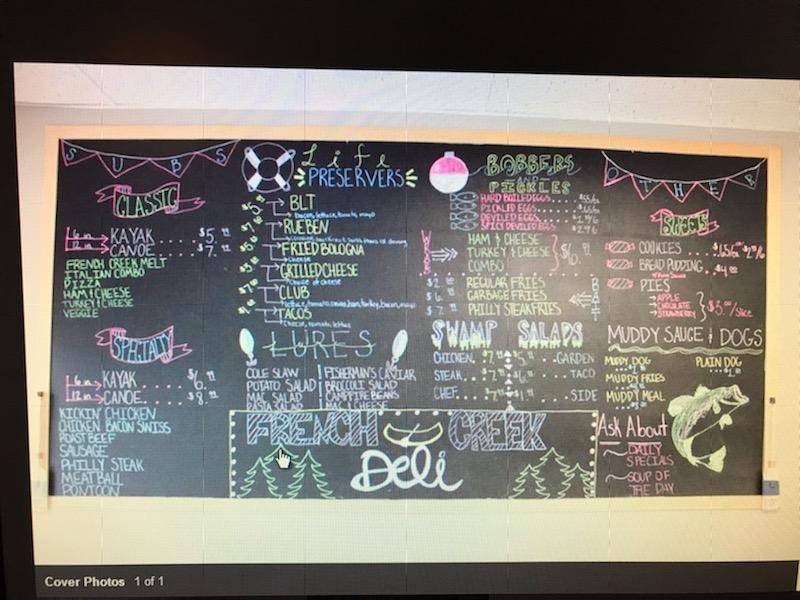 SUBS
CLASSIC
6 in KAYAK.....$5.99
12 in CANOE.....$7.99
FRENCH CREEK MELT
ITALIAN COMBO
PIZZA
HAM & CHEESE
TURKEY & CHEESE
VEGGIE
SPECIALTY
6 in KAYAK.....$6.99
12 in CANOE.....$8.99
KICKIN' CHICKEN
CHICKEN BACON SWISS
ROAST BEEF
SAUSAGE
PHILLY STEAK
MEATBALL
PONTOON
Life
PRESERVERS
BLT
Bacon, lettuce, tomato, mayo
RUEBEN
FRIED BOLOGNA
cheese
GRILLED CHEESE
Choice of cheese
CLUB
lettuce, tomato, swiss, ham, turkey, bacon, mayo
TACOS
Cheese, tomato, lettuce
LURES
COLE SLAW
POTATO SALAD
MAC SALAD
PASTA SALAD
FISHERMAN'S CAVIAR
BROCCOLI SALAD
CAMPFIRE BEANS
MAC & CHEESE
BOBBERS
PICKLES
HARD BOILED EGGS
PICKLED EGGS
DEVILED EGGS
SPICY DEVILED EGGS
HAM & CHEESE
TURKEY & CHEESE
COMBO
REGULAR FRIES
GARBAGE FRIES
PHILLY STEAK FRIES
BAIT
SWAMP SALADS
CHICKEN GARDEN
STEAK TACO
CHEF SIDE
FRENCH CREEK
Deli
OTHER
SWEETS
COOKIES
BREAD PUDDING
PIES
APPLE
CHOCOLATE
STRAWBERRY
/Slice
MUDDY SAUCE & DOGS
MUDDY DOG
MUDDY FRIES
MUDDY MEAL
PLAIN DOG
Ask About
DAILY
SPECIALS
SOUP OF
THE DAY
Cover Photos 1 of 1